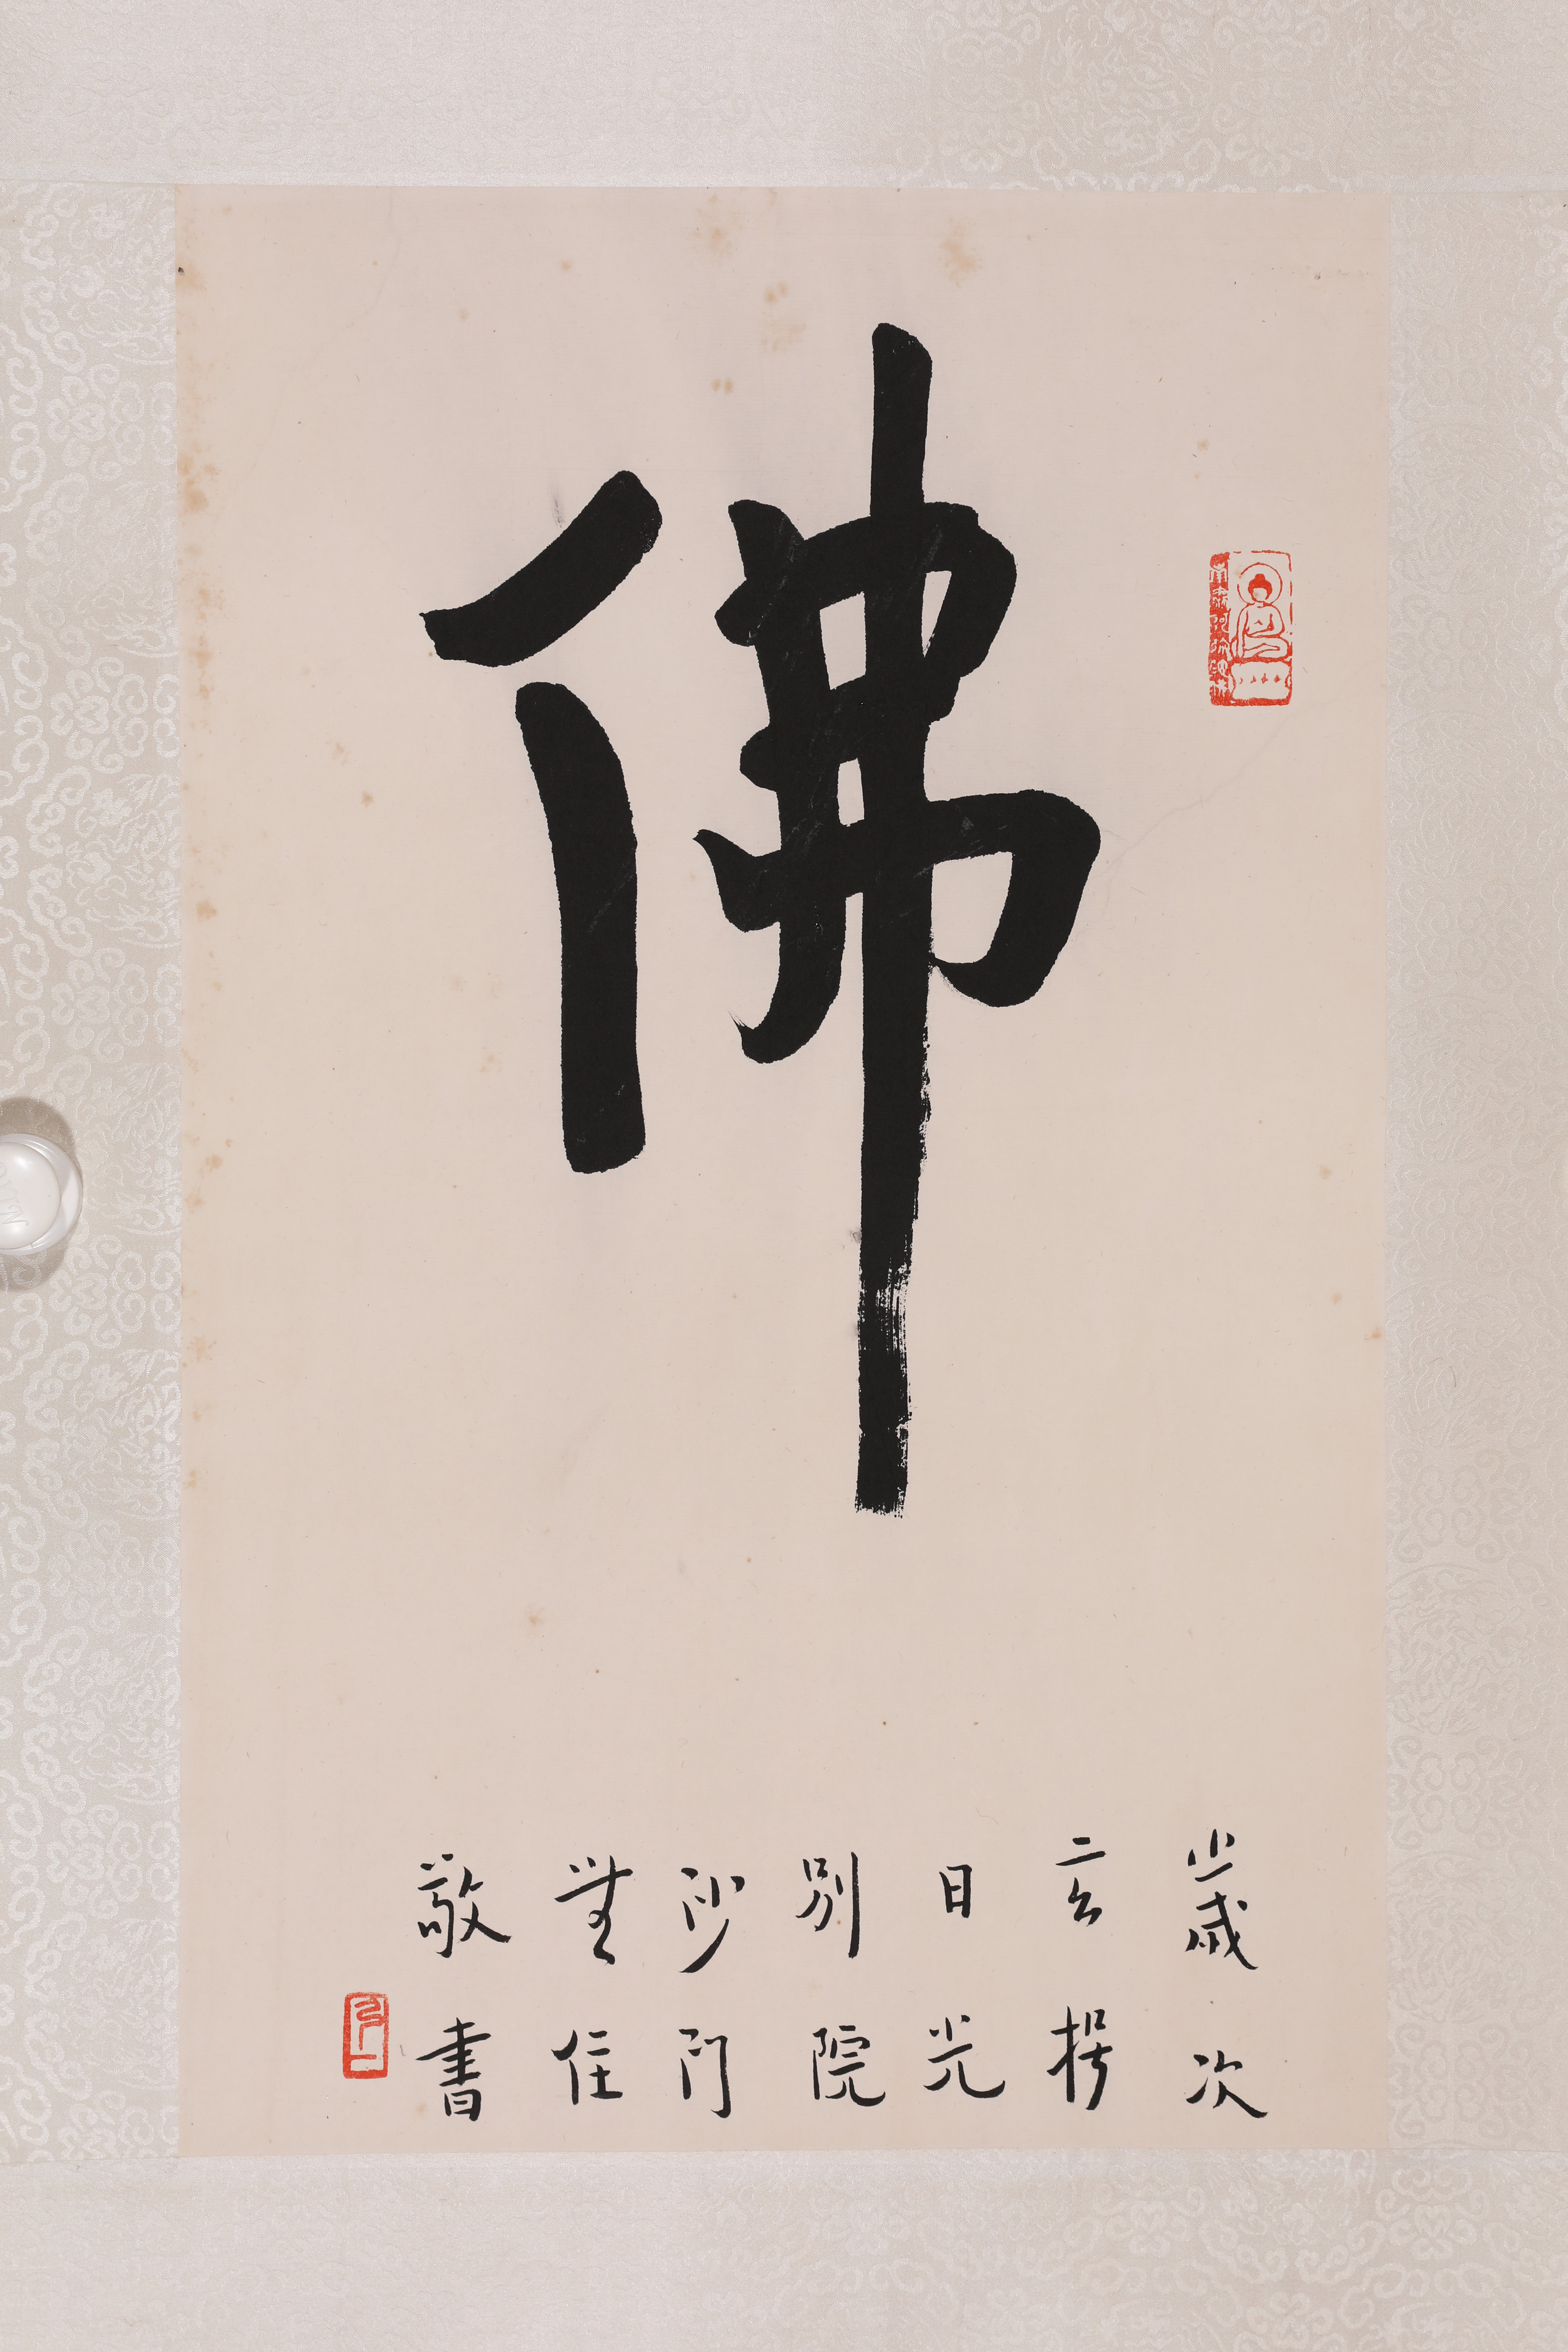 佛
歲次
玄枵
日光
別院
沙門
無住
敬書